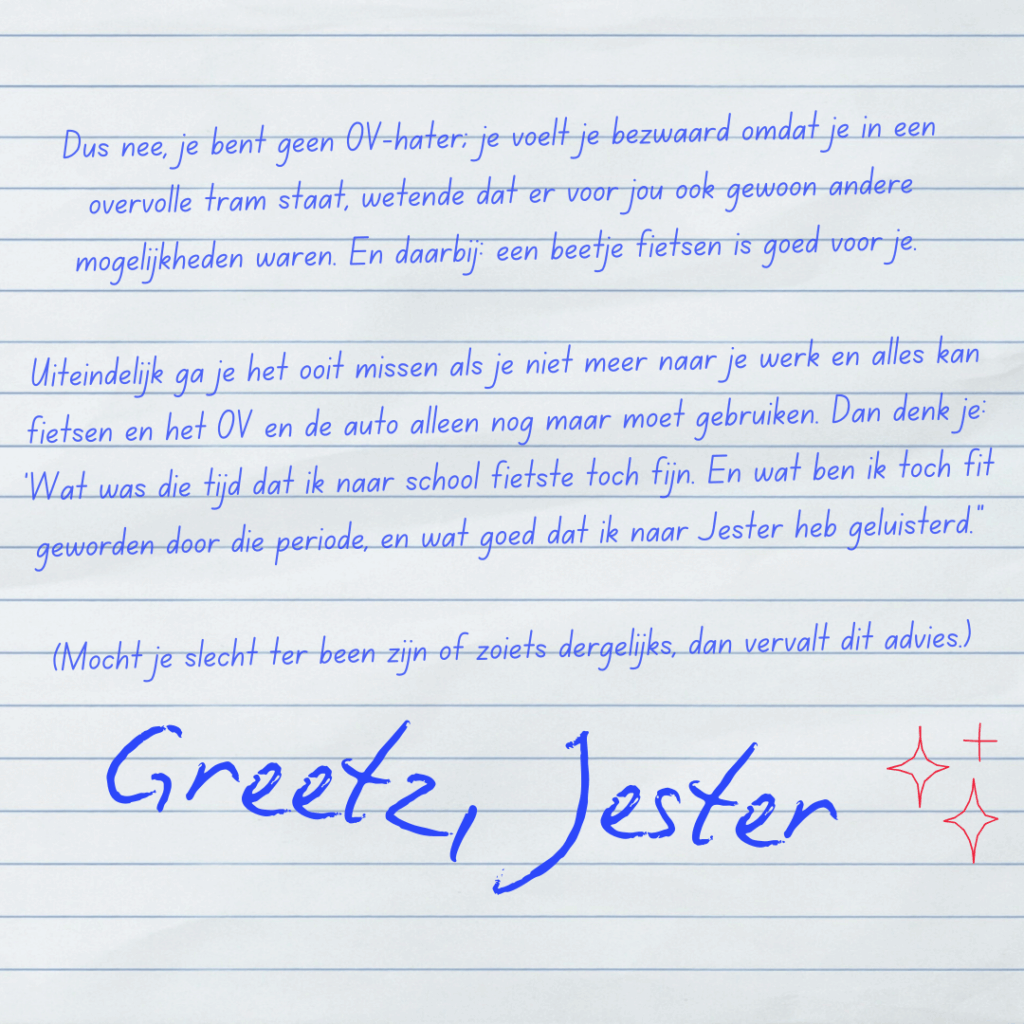 Dus nee, je bent geen OV-hater; je voelt je bezwaard omdat je in een
overvolle tram staat, wetende dat er voor jou ook gewoon andere
mogelijkheden waren. En daarbij: een beetje fietsen is goed voor je.
Uiteindelijk ga je het ooit missen als je niet meer naar je werk en alles kan
fietsen en het OV en de auto alleen nog maar moet gebruiken. Dan denk je:
'Wat was die tijd dat ik naar school fietste toch fijn. En wat ben ik toch fit
geworden door die periode, en wat goed dat ik naar Jester heb geluisterd."
(Mocht je slecht ter been zijn of zoiets dergelijks, dan vervalt dit advies.)
Greetz, Jester